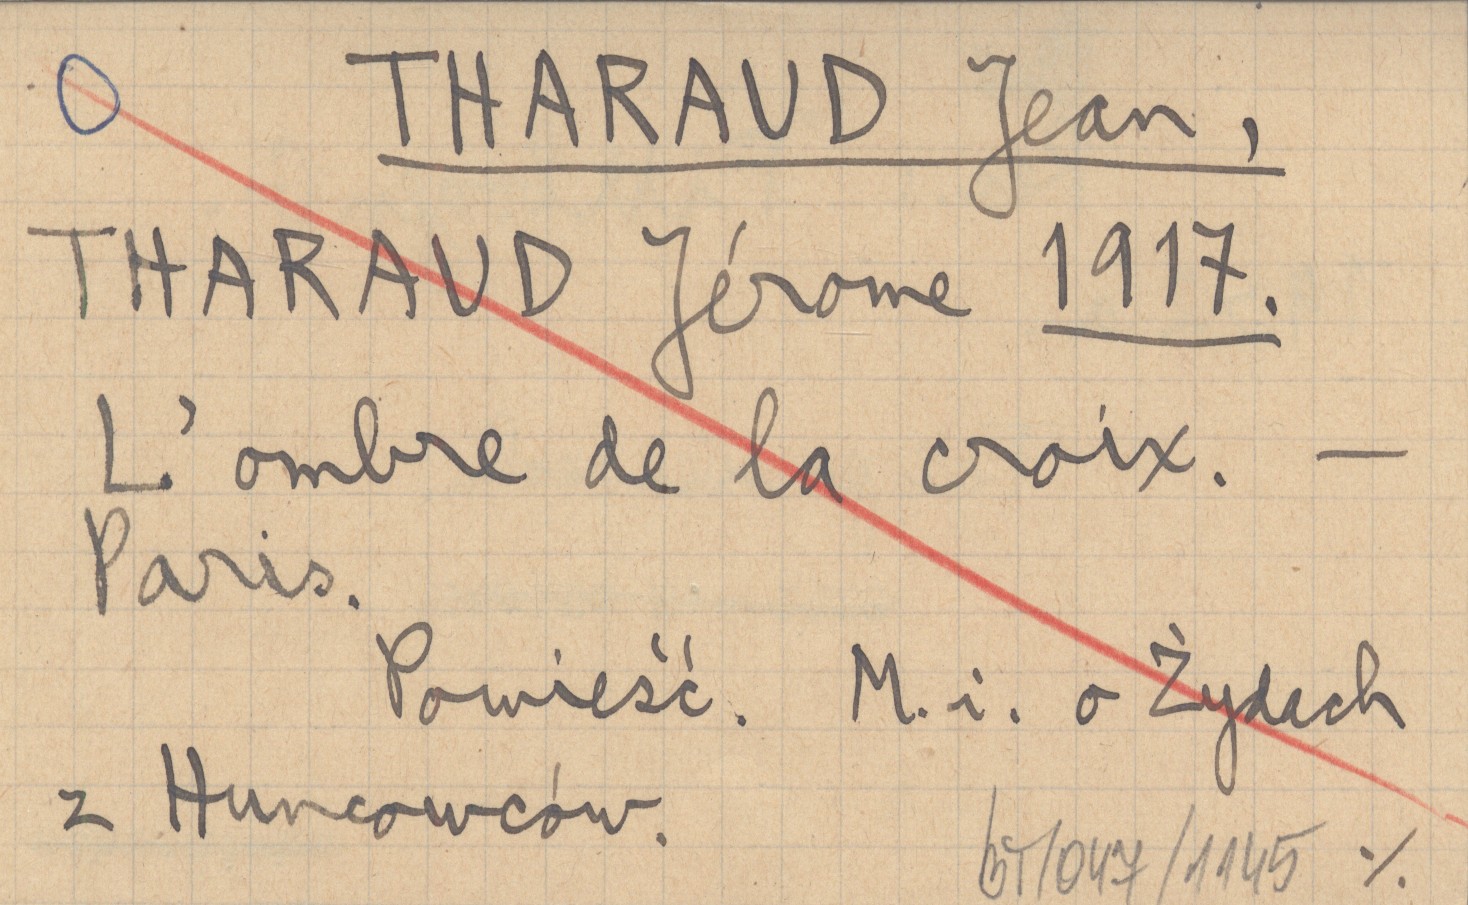 THARAUD Jean,
THARAUD Jérome 1917.
L'ombre de la croix. —
Paris.
Powieść. M. i. o Żydach
z Huncowców.
BT/047/1145 ·/.